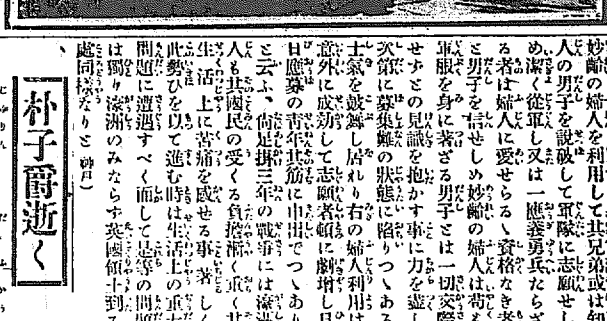 妙齡の婦人を利用して其兄弟或は知
人の男子を說破して軍隊に志願せし
め潔く從軍し又は一應義勇兵たらざ
る者は婦人に愛せらるゝ資格なき者
と男子を信せしめ妙齡の婦人は苟も
軍服を身に著ざる男子とは一切交際
せずとの見識を抱かす事に力を盡し
次第に募集難の狀態に陷りつゝある
士氣を鼓舞し居れり右の婦人利用は
意外に成功して志願者頓に劇增し日
日應募の靑年其筋に申出でつゝあり
と云ふ、尙足掛三年の戰爭には濠洲
人も其國民の受くる負擔漸く重く其
生活上に苦痛を感せる事著しく
此勢ひを以て進む時は生活上の重大
問題に遭遇すべく而して是等の問題
は獨り濠洲のみならず英國領土到る
處同樣なりと(神戶)
朴子爵逝く